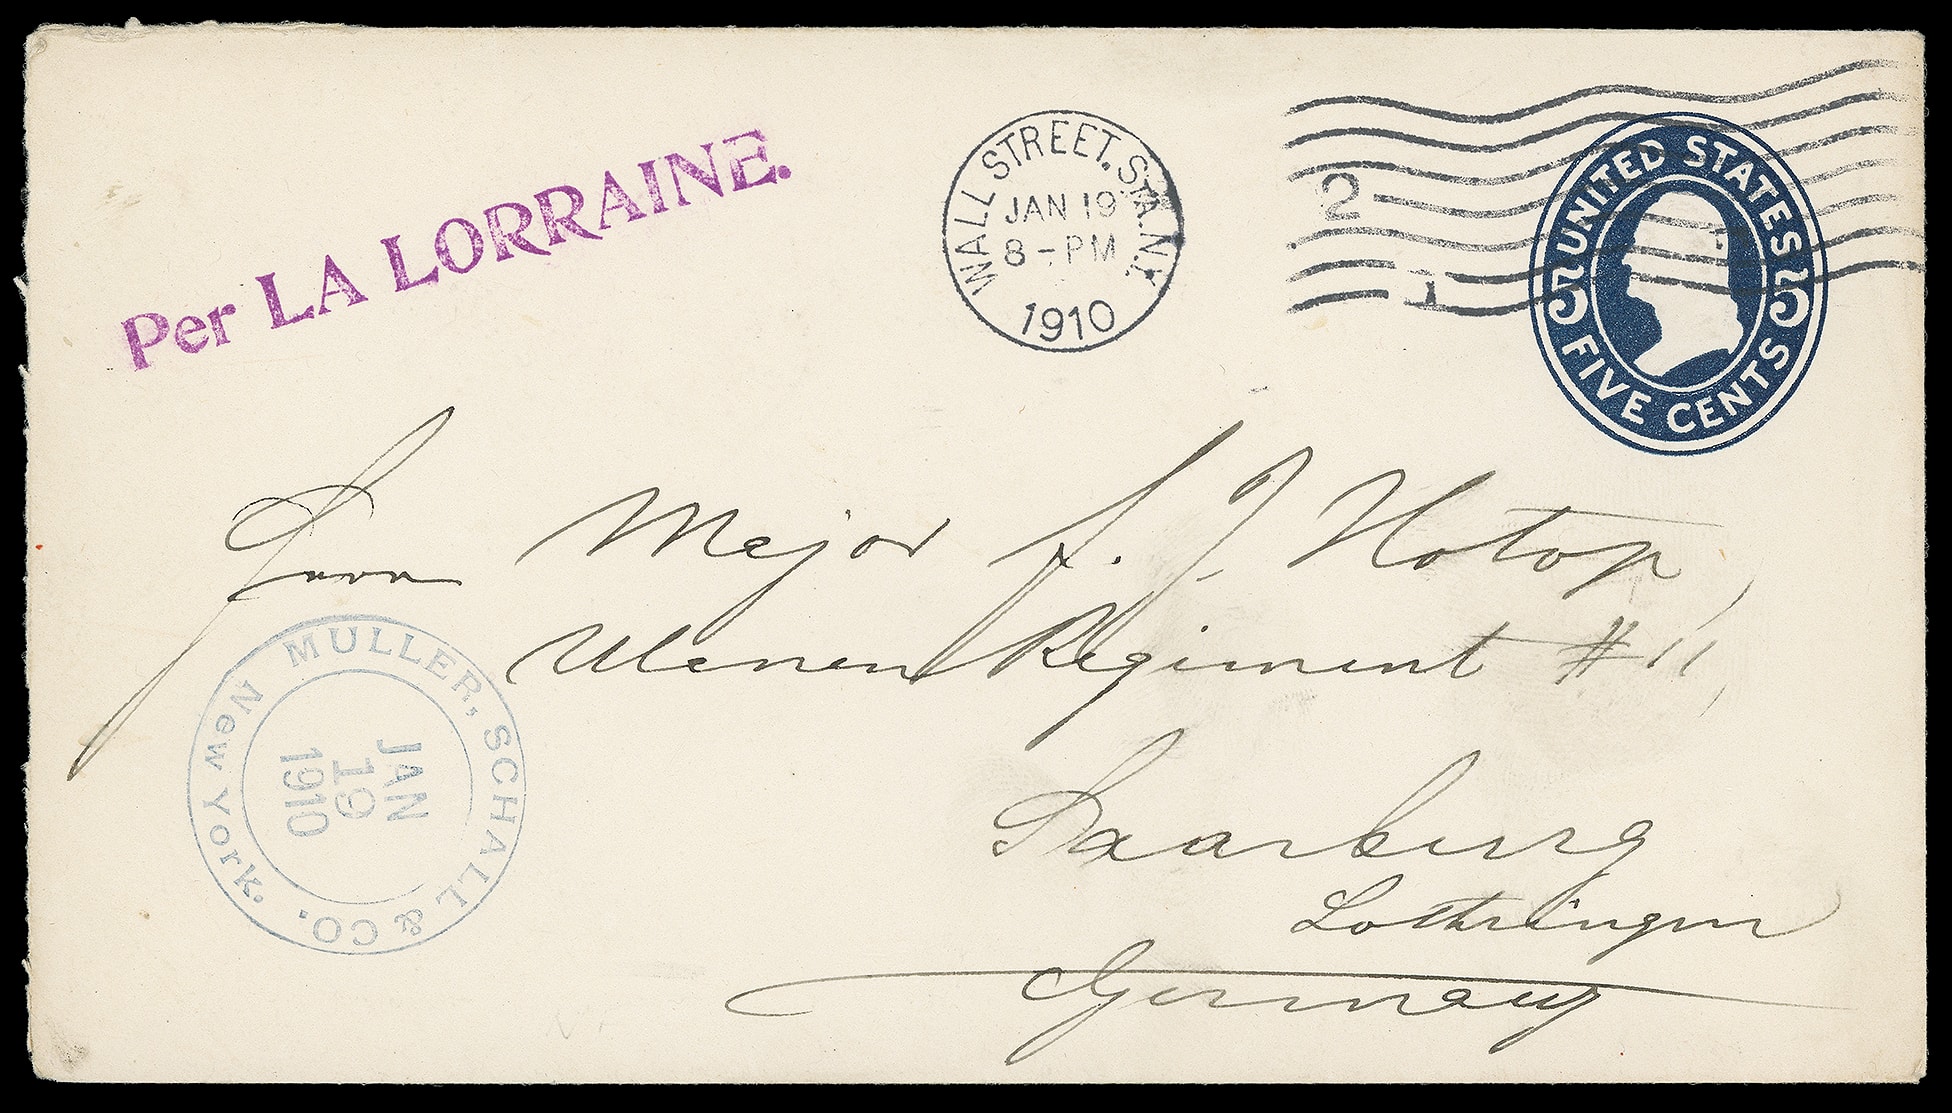 Per LA LORRAINE.
WALL STREET. STA. N.Y.
JAN 19
8-PM
1910
2
1
UNITED STATES
5 5
FIVE CENTS
Herrn Major F. J. Hotop,
Ulanen Regiment # 11,
Saarburg
Lothringen
Germany
MULLER, SCHALL & CO.
NEW YORK.
JAN
19
1910